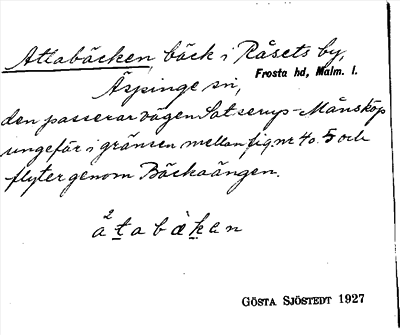 Attabäcken, bäck i Råsets by,
Frosta hd, Malm. l.
Äspinge sn,
den passerar vägen Satserup-Månsköp
ungefär i gränsen mellan fig. nr 4 o. 5 och
flyter genom Bäckaängen.
2
atabäkan
GÖSTA SJÖSTEDT 1927